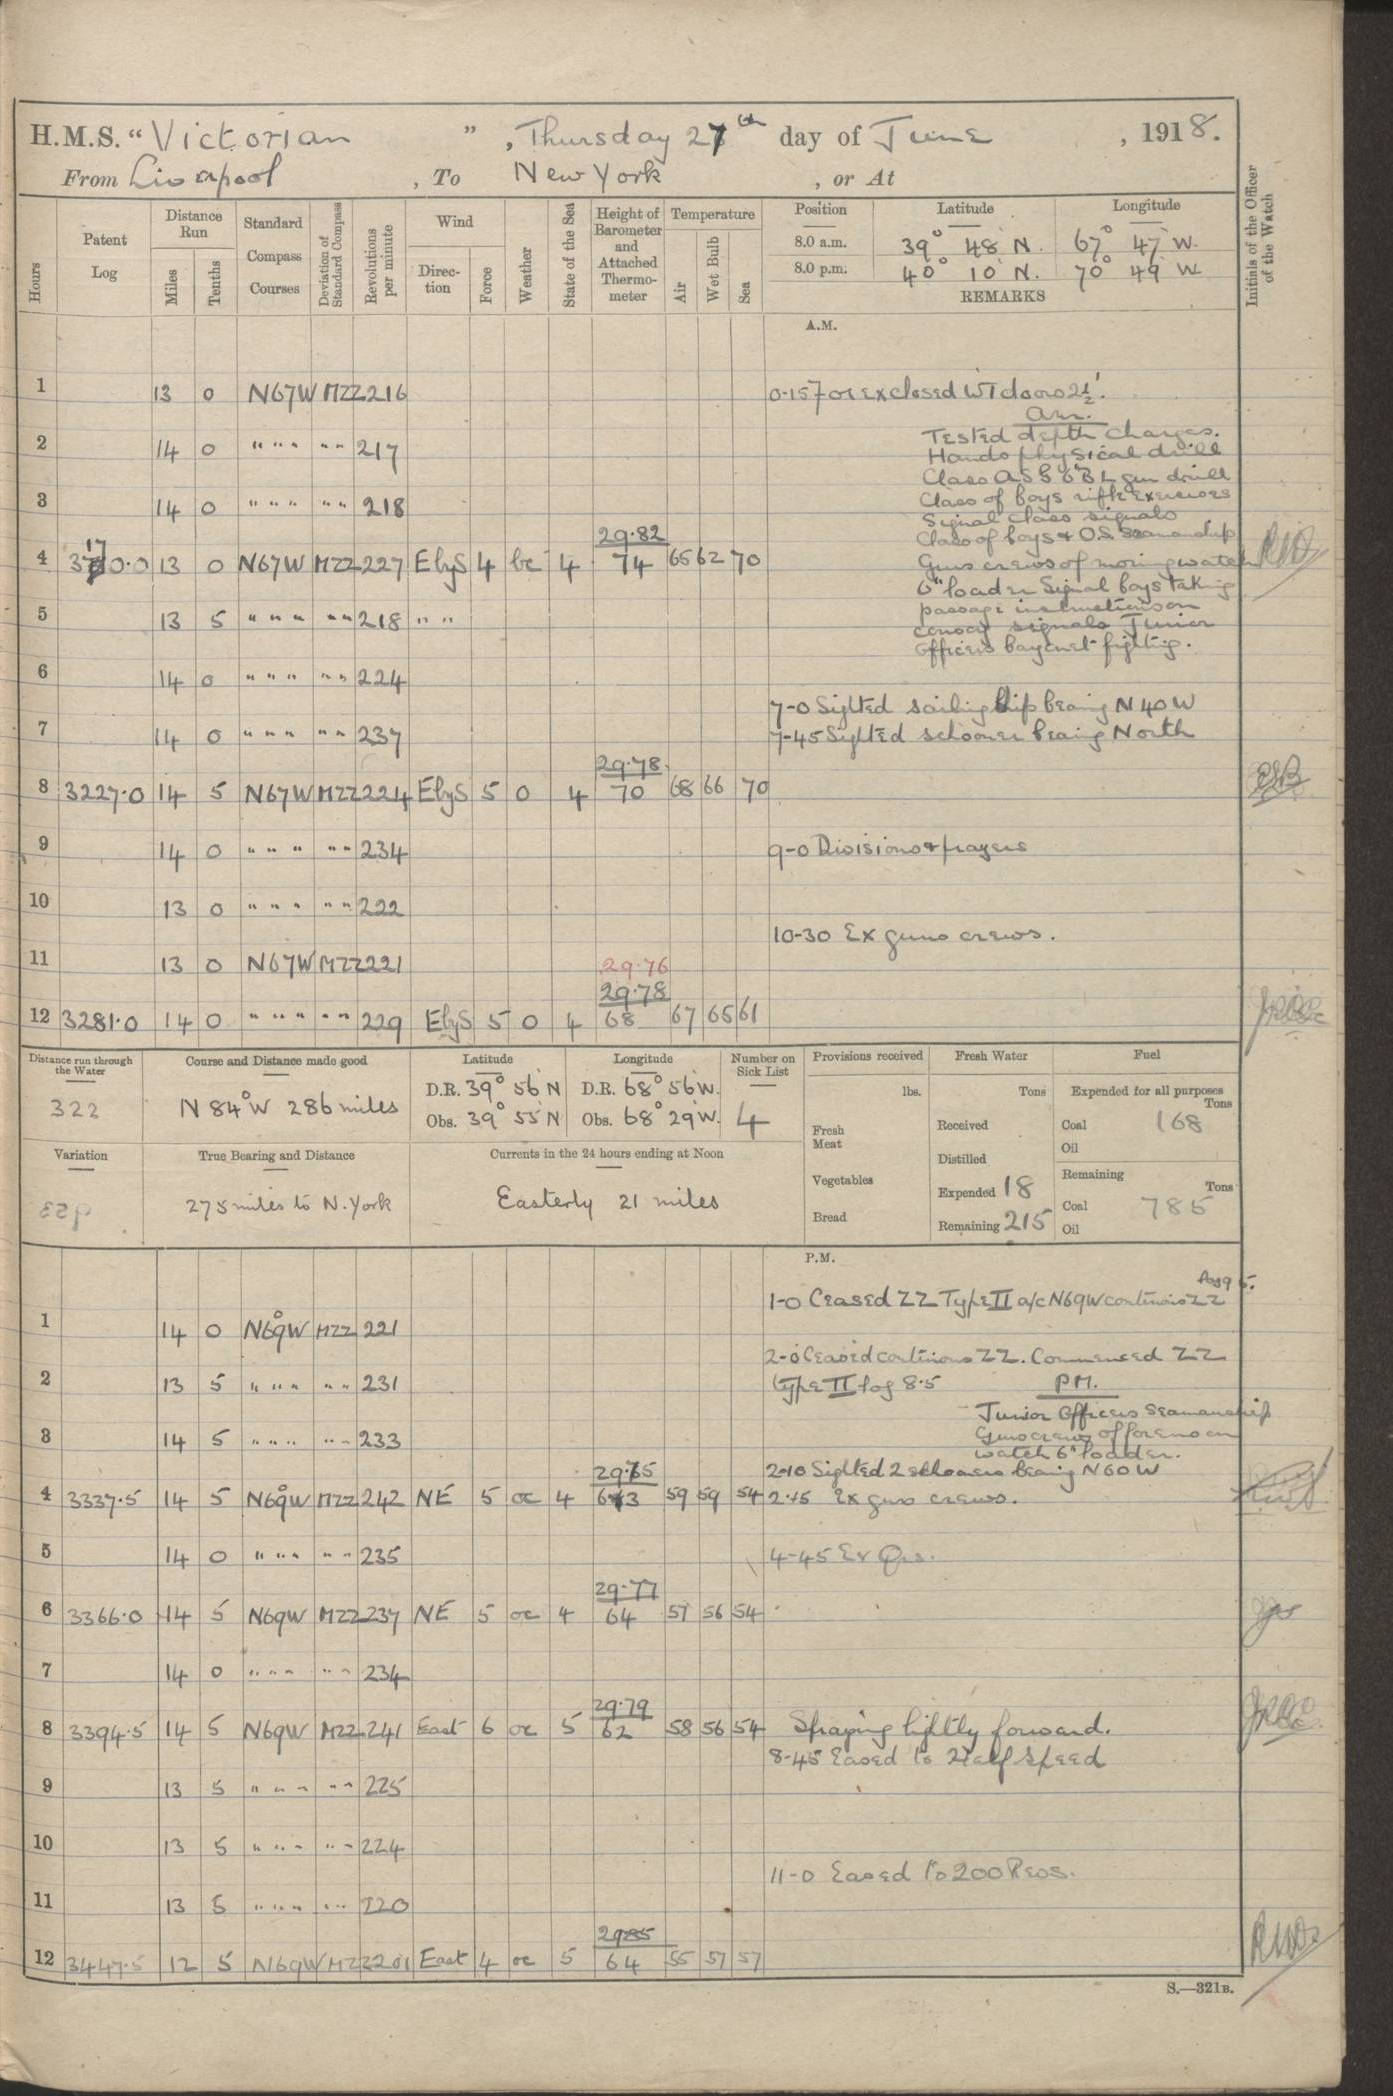 H.M.S. “Victorian ” , Thursday 27th day of June , 1918.
From Liverpool , To New York , or At
Hours Patent Log Distance Run Miles Tenths Standard Compass Courses Deviation of Standard Compass Revolutions per minute Wind Direc-tion Force Weather State of the Sea Height of Barometer and Attached Thermo-meter Temperature Air Wet Bulb Sea Position Latitude Longitude Initials of the Officer of the Watch
8.0 a.m. 39° 48' N. 67° 47' W.
8.0 p.m. 40° 10' N. 70° 49' W
REMARKS
A.M.
1 13 0 N67W MZZ 216 0-15 For Ex closed WT doors 2½'.
am.
2 14 0 " " " " " 217 Tested depth charges.
Hands physical drill
Class 6" B L gun drill
3 14 0 " " " " " 218 Class of boys rifle exercises
Signal class signals
29.82 Class of boys & O.S. seamanship
4 3170.0 13 0 N67W MZZ 227 EbyS 4 bc 4 74 65 62 70 Guns crews of morning watch
6" loader Signal boys taking
5 13 5 " " " " " 218 " " passage instructions on
convoy signals Junior
Officers bayonet fighting.
6 14 0 " " " " " 224
7-0 Sighted sailing ship bearing N40W
7 14 0 " " " " " 237 7-45 Sighted schooner bearing North
29.78
8 3227.0 14 5 N67W MZZ 224 EbyS 5 0 4 70 68 66 70
9 14 0 " " " " " 234 9-0 Divisions & prayers
10 13 0 " " " " " 222
10-30 Ex guns crews.
11 13 0 N67W MZZ 221 29.76
29.78
12 3281.0 14 0 " " " " " 229 EbyS 5 0 4 68 67 65 61
Distance run through the Water Course and Distance made good Latitude Longitude Number on Sick List Provisions received Fresh Water Fuel
lbs. Tons Expended for all purposes Tons
322 N 84° W 286 miles D.R. 39° 56' N D.R. 68° 56' W.
Obs. 39° 55' N Obs. 68° 29' W. 4
Fresh Meat Received Coal 168
Oil
Variation True Bearing and Distance Currents in the 24 hours ending at Noon Distilled Remaining Tons
275 miles to N. York Easterly 21 miles Vegetables Expended 18 Coal 785
Bread Remaining 215 Oil
P.M.
1-0 Ceased ZZ Type II a/c N69W continuous ZZ
1 14 0 N69W MZZ 221
2-0 Ceased continuous ZZ. Commenced ZZ
2 13 5 " " " " " 231 type II log 8.5 P.M.
Junior Officers Seamanship
3 14 5 " " " " " 233 Guns crews of forenoon
watch 6" loader.
29.75 2-10 Sighted 2 schooners bearing N60W
4 3337.5 14 5 N69W MZZ 242 NE 5 oc 4 63 59 59 54 2.45 Ex guns crews.
5 14 0 " " " " " 235 4-45 Ev Qrs.
29.77
6 3366.0 14 5 N69W MZZ 237 NE 5 oc 4 64 57 56 54
7 14 0 " " " " " 234
29.79
8 3394.5 14 5 N69W MZZ 241 East 6 oc 5 62 58 56 54 Spraying lightly forward.
8-45 Eased to Half speed
9 13 5 " " " " " 225
10 13 5 " " " " " 224
11-0 Eased to 200 Revs.
11 13 5 " " " " " 220
29.85
12 3447.5 12 5 N69W MZZ 201 East 4 oc 5 64 55 57 57
S.—321B.